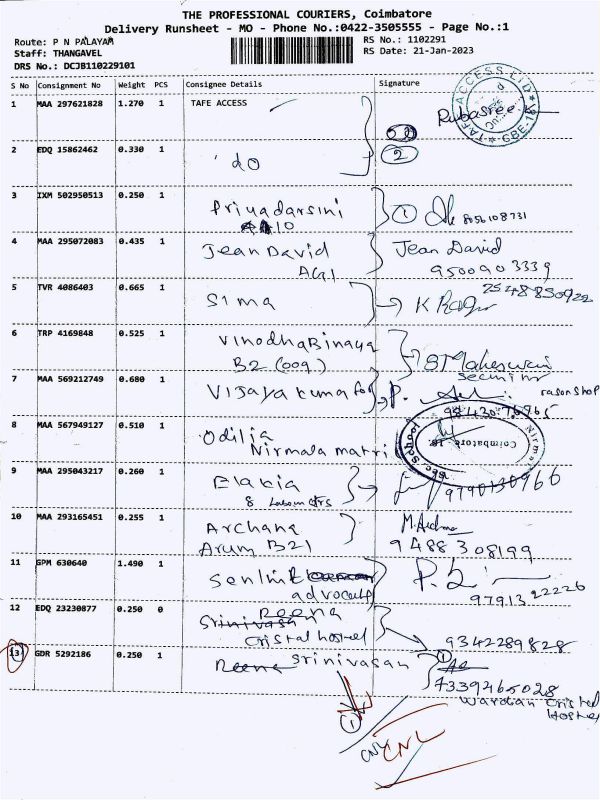 THE PROFESSIONAL COURIERS, Coimbatore
Delivery Runsheet - MO - Phone No.:0422-3505555 - Page No.:1
Route: P N PALAYAM
Staff: THANGAVEL
DRS No.: DCJB110229101
RS No.: 1102291
RS Date: 21-Jan-2023
S No Consignment No Weight PCS Consignee Details Signature
1 MAA 297621828 1.270 1 TAFE ACCESS Rubasree
TAFE ACCESS LTD CBE-18
2 EDQ 15862462 0.330 1 do 2
3 IXM 502950513 0.250 1 Priyadarsini 1 8056108731
A10
4 MAA 295072083 0.435 1 Jean David Jean David
AG1 9500903339
5 TVR 4086403 0.665 1 Sima K
6 TRP 4169848 0.525 1 Vinodha Binaya S Maheswari
B2 (009)
7 MAA 569212749 0.680 1 Vijayakumar P.
9843076965
8 MAA 567949127 0.510 1 Odilia
Nirmala matri
Coimbatore
9 MAA 295043217 0.260 1 Elakia 9790130966
8
10 MAA 293165451 0.255 1 Archana
Arum B21 9488308199
11 GPM 630640 1.490 1 Senlmil P.
advocate 9791322226
12 EDQ 23230877 0.250 0 Srinivasan Reena
Cristal hostel 9342289828
13 GDR 5292186 0.250 1 Reena Srinivasan 1
7339465028
Wardian Cristel
Hostel
1
CNL CNL